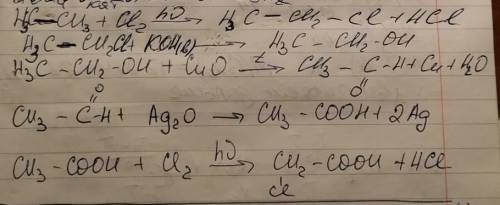 H₃C—CH₃ + Cl₂ hν→ H₃C—CH₂—Cl + HCl
H₃C—CH₂Cl + KOH → H₃C—CH₂-OH
H₃C—CH₂-OH + CuO t→ CH₃—C-H + Cu + H₂O
O
O
CH₃—C-H + Ag₂O → CH₃—COOH + 2Ag
CH₃-COOH + Cl₂ hν→ CH₂-COOH + HCl
Cl